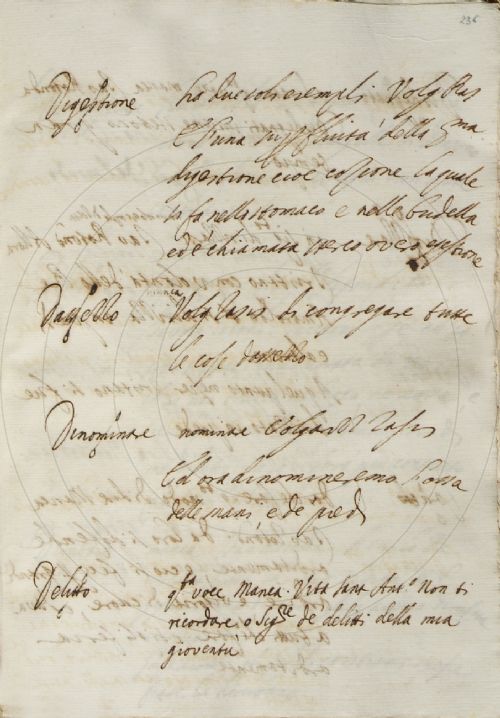 236
Digestione ha due soli esempli. Volg Ras
E l'una superfluità della pma
digestione cioè cozione la quale
si fa nello stomaco e nelle budella
ed è chiamata sterco overo egestione
Dassello manca Volg Rasis di congregare tutte
le cose dassello
Dinominare nominare Volgar di Rasis
Ed ora dinomineremo l'ossa
delle mani, e de piedi
Delitto qta voce Manca. Vita Sant Anto Non ti
ricordare o Sigre de delitti della mia
gioventù